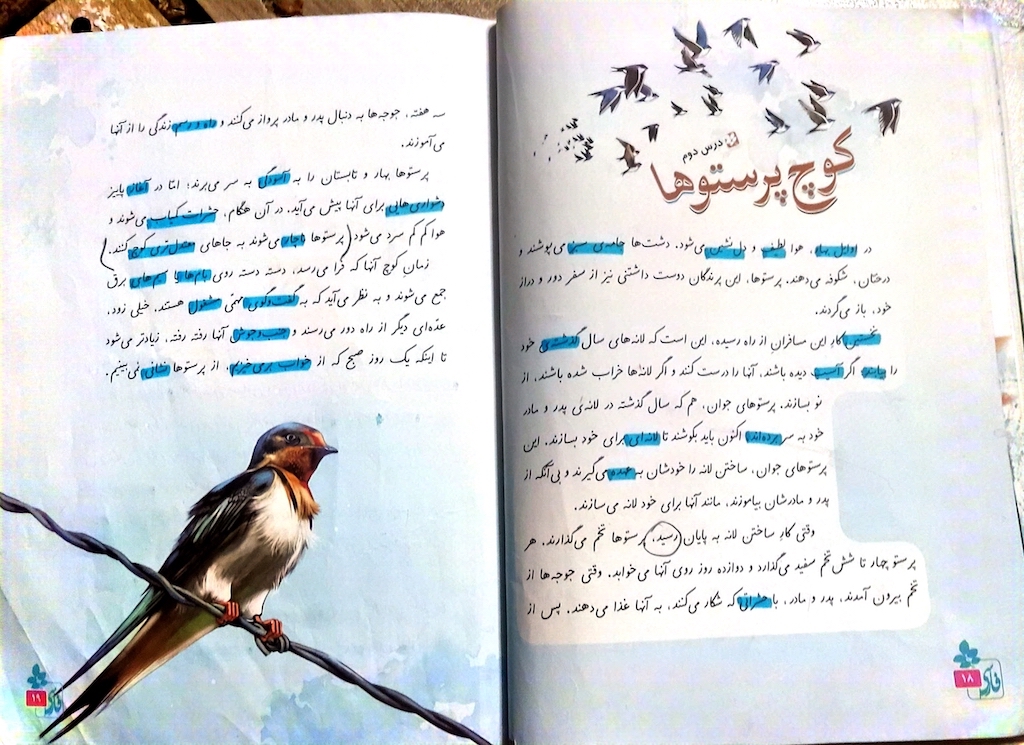 درس دوم
کوچ پرستوها
در اوایل بهار، هوا لطیف و دل‌نشین می‌شود. دشت‌ها جامه‌ی سبز می‌پوشند و
درختان، شکوفه می‌دهند. پرستوها، این پرندگان دوست داشتنی نیز از سفر دور و دراز
خود، باز می‌گردند.
نخستین کارِ این مسافرانِ از راه رسیده، این است که لانه‌های سال گذشته‌ی خود
را بیابند. اگر آسیب دیده باشند، آنها را درست کنند و اگر لانه‌ها خراب شده باشند، از
نو بسازند. پرستوهای جوان، هم که سال گذشته در لانه‌ی پدر و مادر
خود به سر برده‌اند، اکنون باید بکوشند تا لانه‌ای برای خود بسازند. این
پرستوهای جوان، ساختن لانه را خودشان به عهده می‌گیرند و بی‌آنکه از
پدر و مادرشان بیاموزند، مانند آنها برای خود لانه می‌سازند.
وقتی کارِ ساختن لانه به پایان رسید، پرستوها تخم می‌گذارند. هر
پرستو چهار تا شش تخم سفید می‌گذارد و دوازده روز روی آنها می‌خوابد. وقتی جوجه‌ها از
تخم بیرون آمدند، پدر و مادر، با حشراتی که شکار می‌کنند، به آنها غذا می‌دهند. پس از
۱۸
سه هفته، جوجه‌ها به دنبال پدر و مادر پرواز می‌کنند و راه و رسم زندگی را از آنها
می‌آموزند.
پرستوها بهار و تابستان را به آسودگی به سر می‌برند؛ امّا در آغاز پاییز
دشواری‌هایی برای آنها پیش می‌آید. در آن هنگام، حشرات کمیاب می‌شوند و
هوا کم کم سرد می‌شود (پرستوها ناچار می‌شوند به جاهای معتدل‌تری کوچ کنند.)
زمانِ کوچ آنها که فرا می‌رسد، دسته دسته روی بام‌ها یا سیم‌های برق
جمع می‌شوند و به نظر می‌آید که به گفت‌وگوی مهمّی مشغول هستند. خیلی زود،
عدّه‌ای دیگر از راه دور می‌رسند و جنب‌وجوش آنها رفته رفته، زیادتر می‌شود
تا اینکه یک روز صبح که از خواب برمی‌خیزیم، از پرستوها نشانی نمی‌بینیم.
۱۹